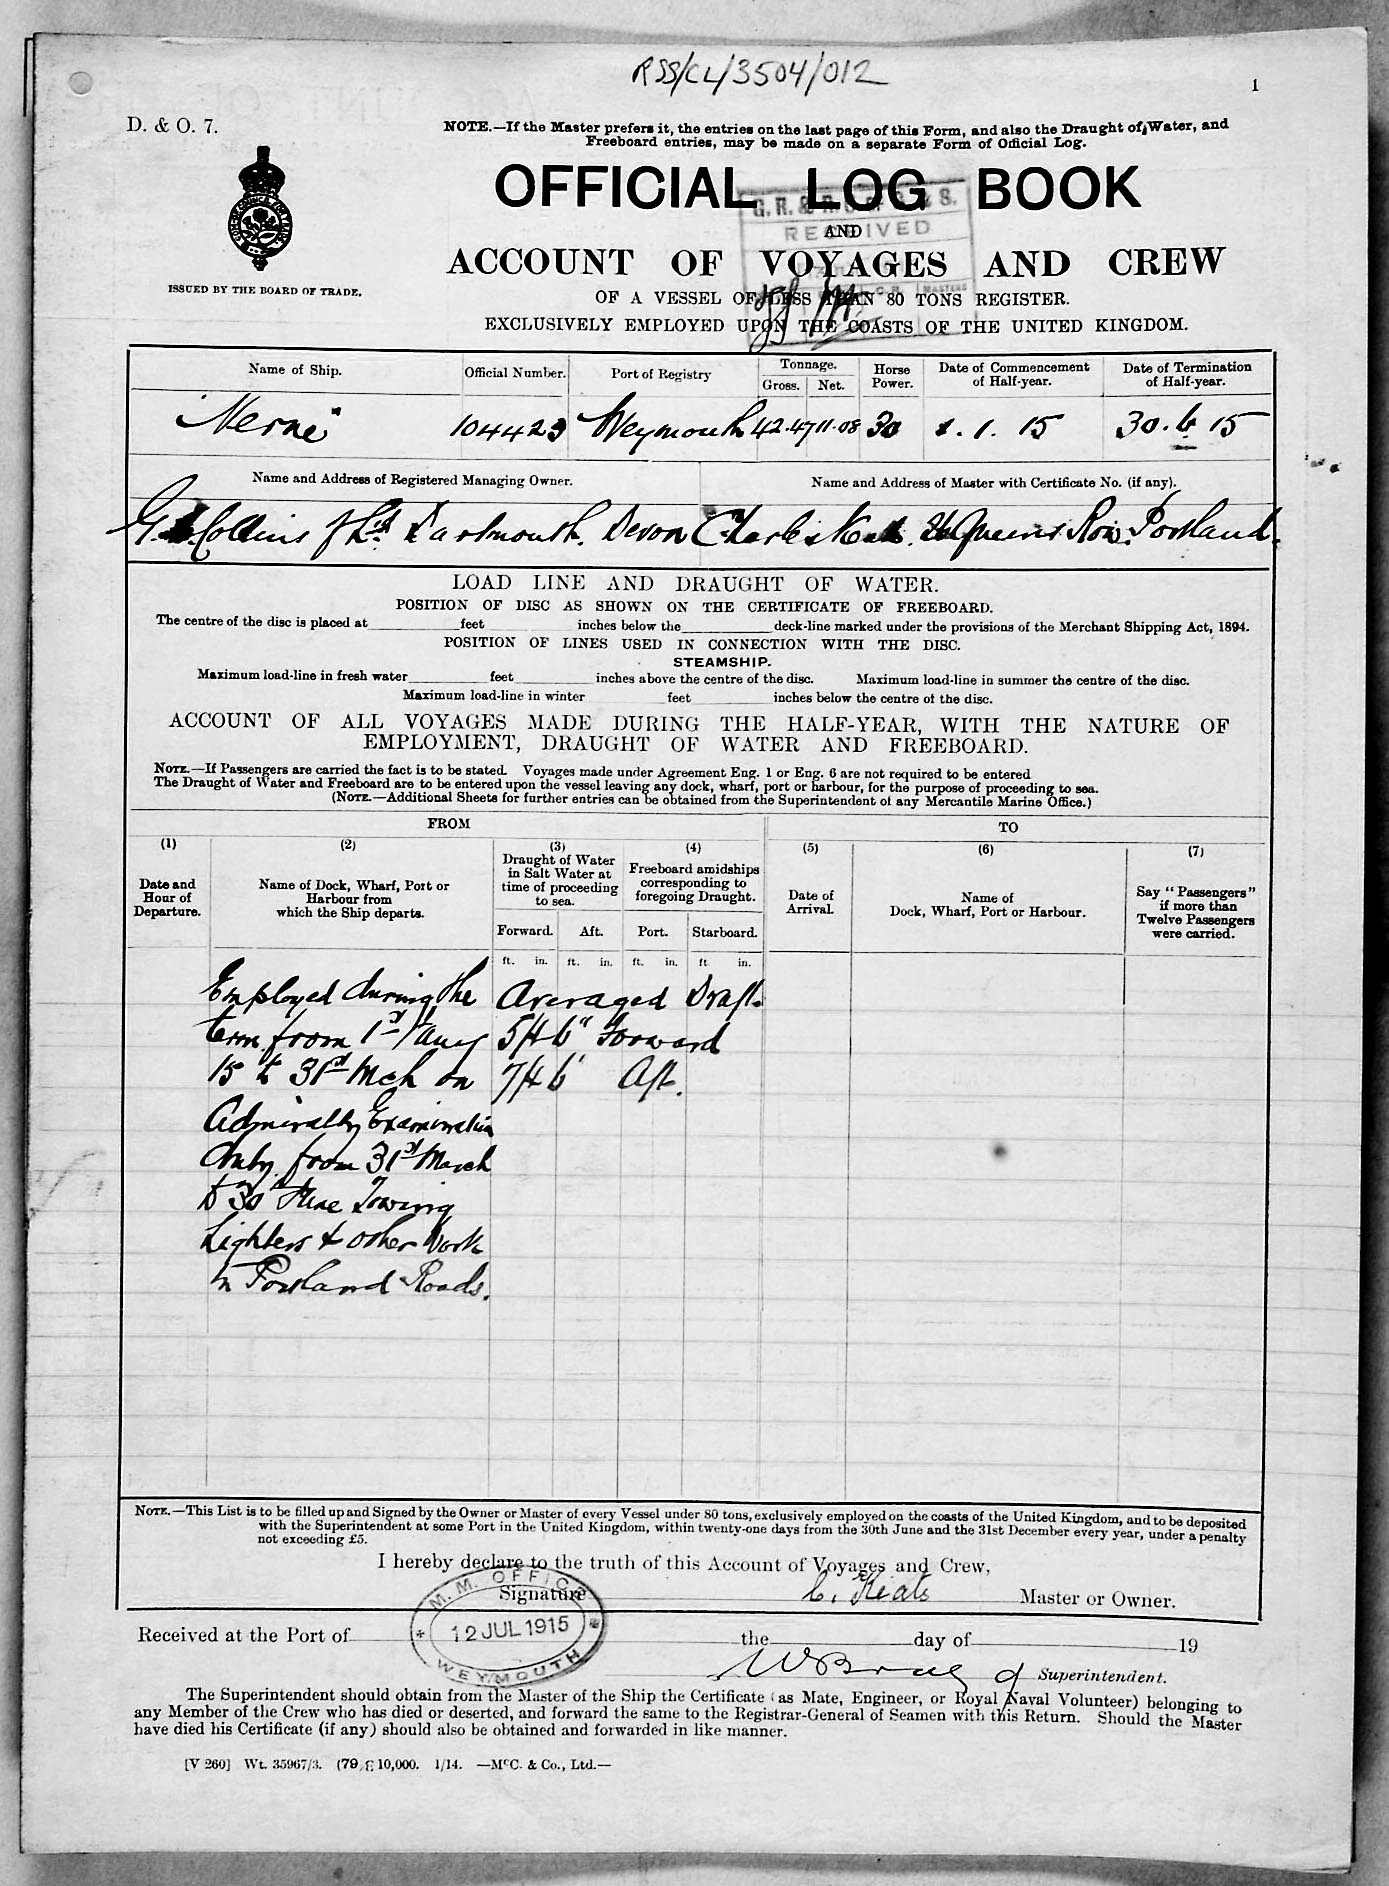 RSS/CL/3504/012
1
D. & O. 7.
NOTE.—If the Master prefers it, the entries on the last page of this Form, and also the Draught of Water, and
Freeboard entries, may be made on a separate Form of Official Log.
OFFICIAL LOG BOOK
AND
RECEIVED
ACCOUNT OF VOYAGES AND CREW
ISSUED BY THE BOARD OF TRADE.
OF A VESSEL OF LESS THAN 80 TONS REGISTER.
EXCLUSIVELY EMPLOYED UPON THE COASTS OF THE UNITED KINGDOM.
Name of Ship. Official Number. Port of Registry Tonnage. Gross. Net. Horse Power. Date of Commencement of Half-year. Date of Termination of Half-year.
"Verne" 104423 Weymouth 42.47 11.08 30 1. 1. 15 30. 6 15
Name and Address of Registered Managing Owner. Name and Address of Master with Certificate No. (if any).
G. Collins & Ltd Dartmouth. Devon Charles Keats. Queens Row. Portland.
LOAD LINE AND DRAUGHT OF WATER.
POSITION OF DISC AS SHOWN ON THE CERTIFICATE OF FREEBOARD.
The centre of the disc is placed at feet inches below the deck-line marked under the provisions of the Merchant Shipping Act, 1894.
POSITION OF LINES USED IN CONNECTION WITH THE DISC.
STEAMSHIP.
Maximum load-line in fresh water feet inches above the centre of the disc. Maximum load-line in summer the centre of the disc.
Maximum load-line in winter feet inches below the centre of the disc.
ACCOUNT OF ALL VOYAGES MADE DURING THE HALF-YEAR, WITH THE NATURE OF
EMPLOYMENT, DRAUGHT OF WATER AND FREEBOARD.
NOTE.—If Passengers are carried the fact is to be stated. Voyages made under Agreement Eng. 1 or Eng. 6 are not required to be entered
The Draught of Water and Freeboard are to be entered upon the vessel leaving any dock, wharf, port or harbour, for the purpose of proceeding to sea.
(NOTE.—Additional Sheets for further entries can be obtained from the Superintendent of any Mercantile Marine Office.)
FROM TO
(1) (2) (3) (4) (5) (6) (7)
Date and Hour of Departure.
Name of Dock, Wharf, Port or Harbour from which the Ship departs.
Draught of Water in Salt Water at time of proceeding to sea.
Freeboard amidships corresponding to foregoing Draught.
Date of Arrival.
Name of Dock, Wharf, Port or Harbour.
Say "Passengers" if more than Twelve Passengers were carried.
Forward. Aft. Port. Starboard.
ft. in. ft. in. ft. in. ft. in.
Employed during the Averaged Draft.
term from 1st Jany 5ft 6" Forward
15 to 31st Mch on 7ft 6" Aft.
Admiralty Examination
Duty. from 31st March
to 30 June Towing
Lighters & other Work
in Portland Roads.
NOTE.—This List is to be filled up and Signed by the Owner or Master of every Vessel under 80 tons, exclusively employed on the coasts of the United Kingdom, and to be deposited
with the Superintendent at some Port in the United Kingdom, within twenty-one days from the 30th June and the 31st December every year, under a penalty
not exceeding £5.
I hereby declare to the truth of this Account of Voyages and Crew,
Signature C. Keats Master or Owner.
M. M. OFFICE
12 JUL 1915
WEYMOUTH
Received at the Port of the day of 19
Superintendent.
The Superintendent should obtain from the Master of the Ship the Certificate (as Mate, Engineer, or Royal Naval Volunteer) belonging to
any Member of the Crew who has died or deserted, and forward the same to the Registrar-General of Seamen with this Return. Should the Master
have died his Certificate (if any) should also be obtained and forwarded in like manner.
[V 260] Wt. 35967/3. (79) 10,000. 1/14. —McC. & Co., Ltd.—